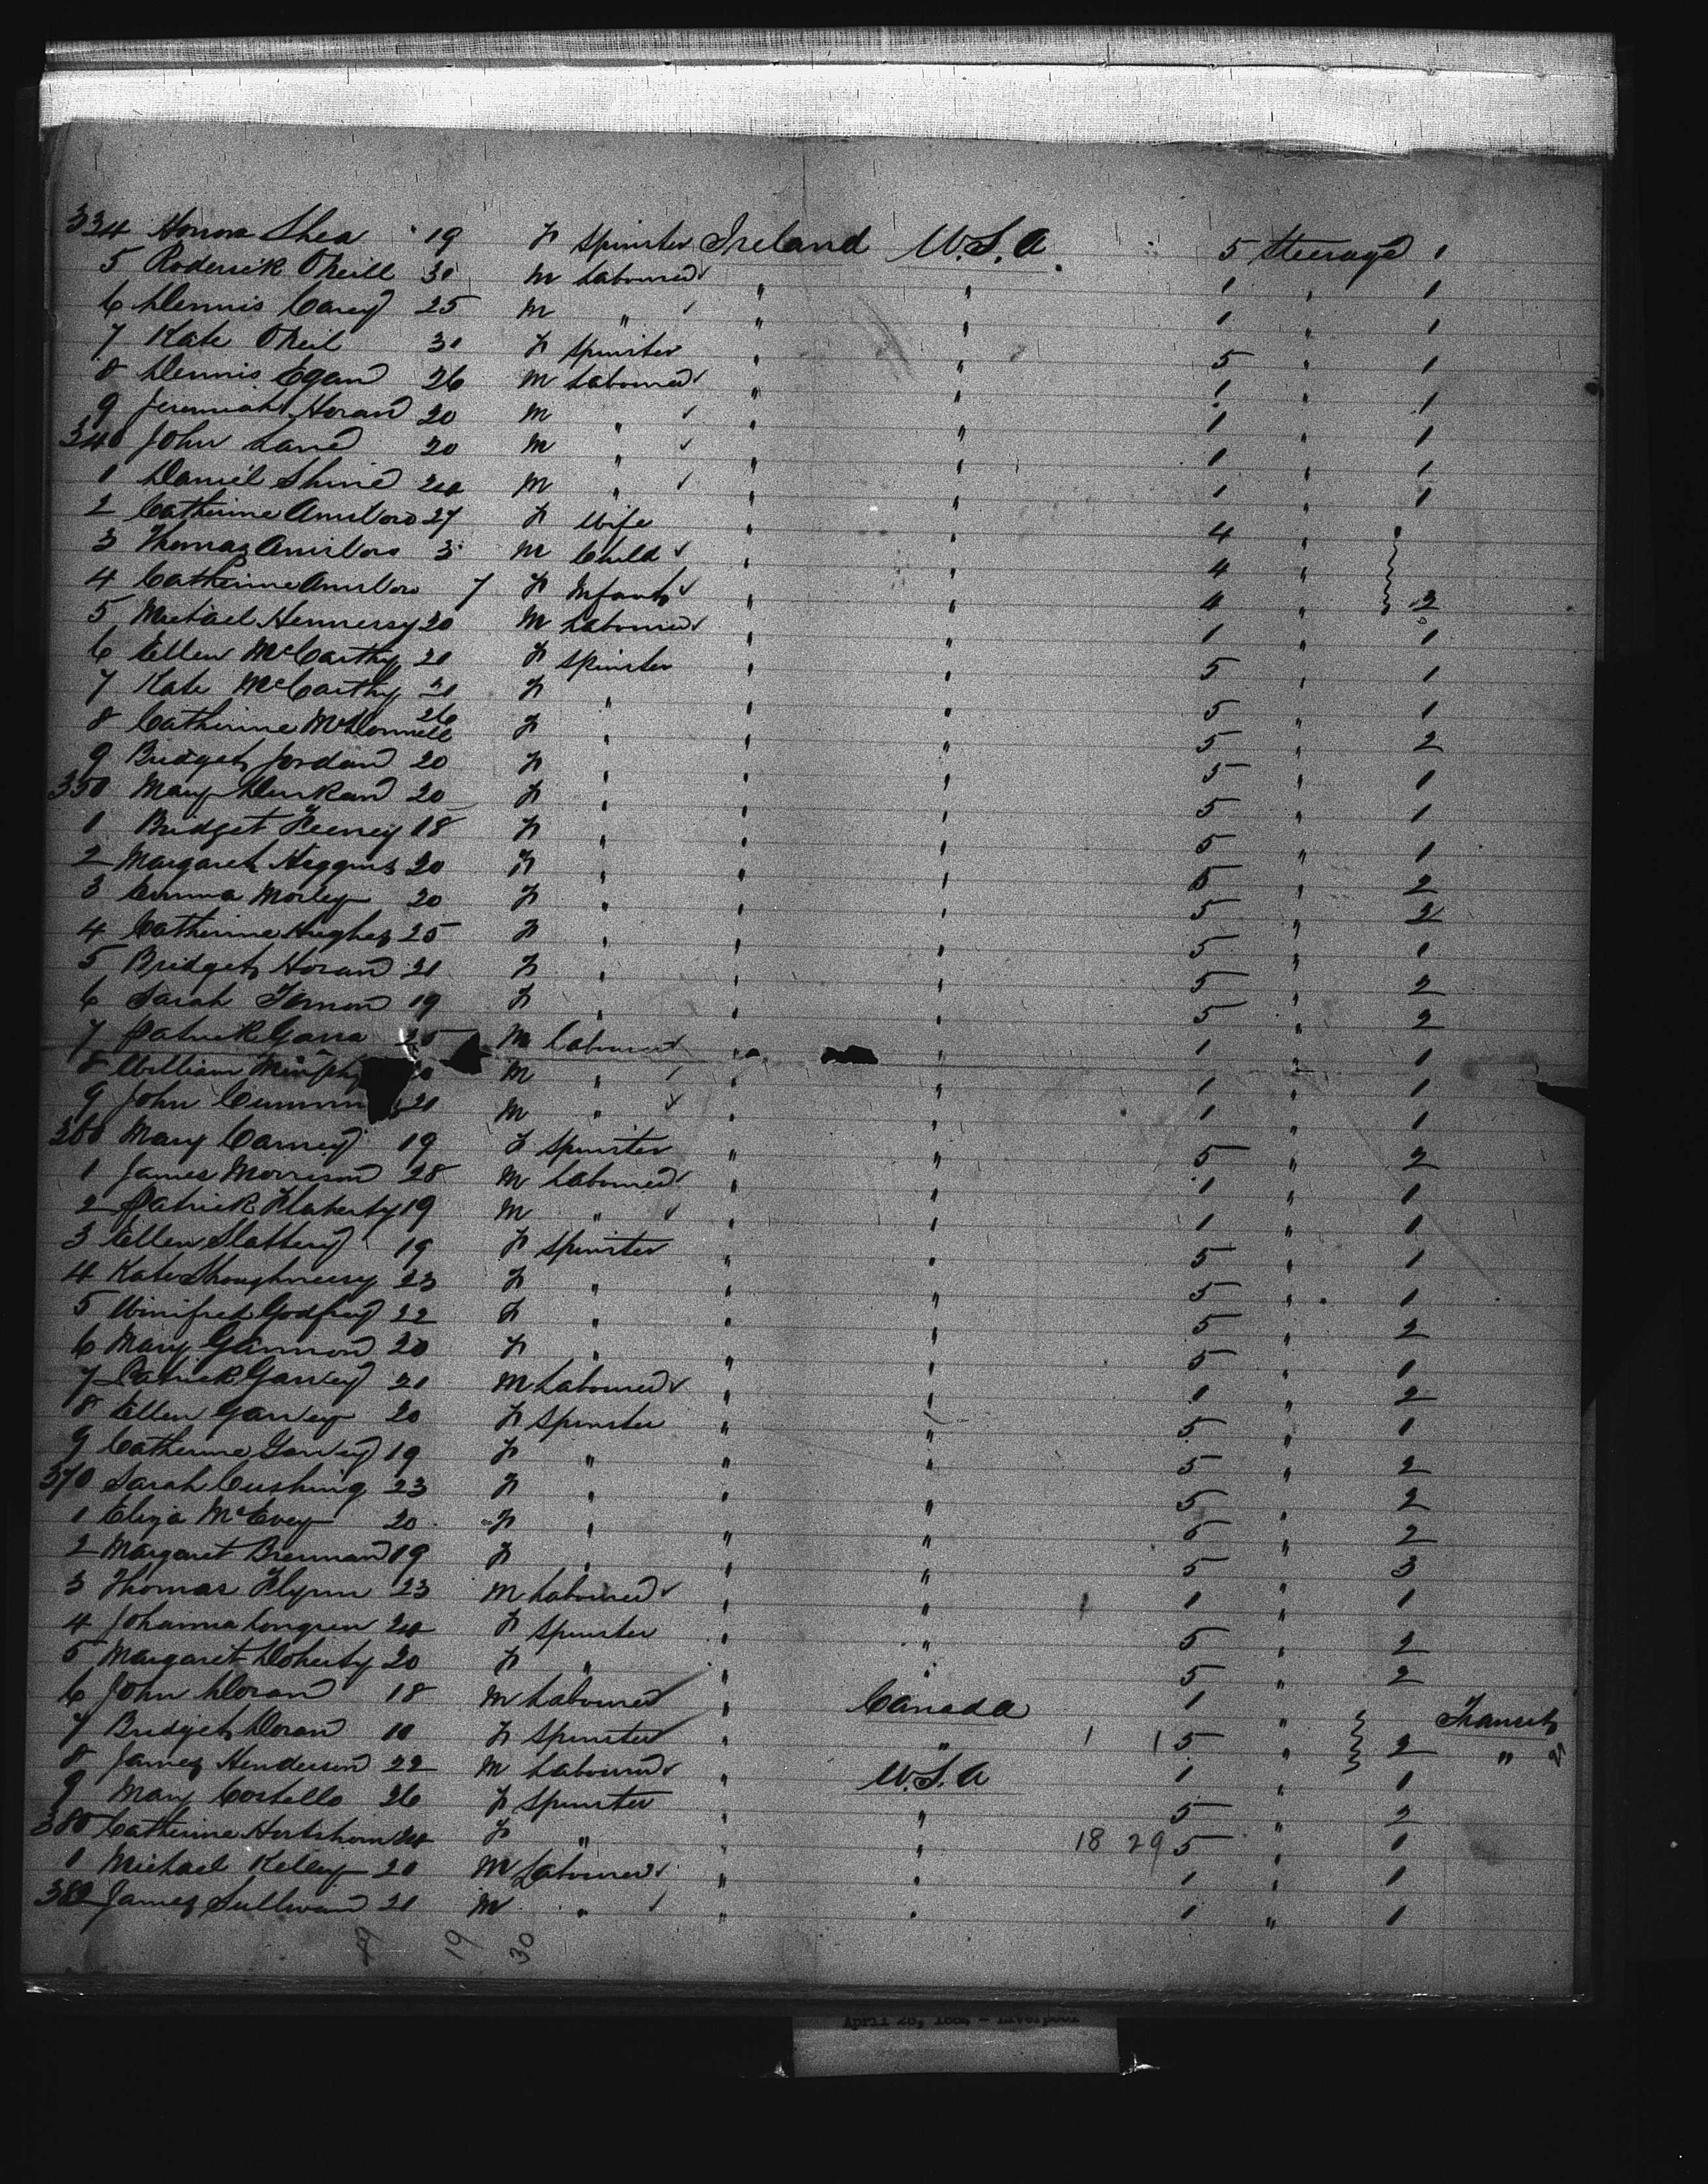 334 Honora Shea 19 F Spinster Ireland U.S.A. 5 Steerage 1
5 Roderick O'Neill 30 M Labourer " " 1 " 1
6 Dennis Carey 25 M " " " 1 " 1
7 Kate O'Neil 30 F Spinster " " 5 " 1
8 Dennis Egan 26 M Labourer " " 1 " 1
9 Jeremiah Horan 20 M " " " 1 " 1
340 John Lane 20 M " " " 1 " 1
1 Daniel Shine 20 M " " " 1 " 1
2 Catherine 27 F Wife " 4 "
3 Thomas 3 M Child " 4 "
4 Catherine 7 F Infant " 4 " 2
5 Michael Hennessy 20 M Labourer " " 1 " 1
6 Ellen McCarthy 20 F Spinster " " 5 " 1
7 Kate McCarthy 21 F " " " 5 " 1
8 Catherine McDonnell 26 F " " " 5 " 2
9 Bridget Jordan 20 F " " " 5 " 1
350 Mary Durkan 20 F " " " 5 " 1
1 Bridget Feeney 18 F " " " 5 " 1
2 Margaret Higgins 20 F " " " 5 " 2
3 Emma Morley 20 F " " " 5 " 2
4 Catherine Hughes 25 F " " " 5 " 1
5 Bridget Horan 21 F " " " 5 " 2
6 Sarah 19 F " " " 5 " 2
7 Patrick Gara 25 M Labourer " 1 " 1
8 William Murphy M " " " 1 " 1
9 John 21 M " " " 1 " 1
360 Mary Carney 19 F Spinster " " 5 " 2
1 James Morrison 28 M Labourer " " 1 " 1
2 Patrick Flaherty 19 M " " " 1 " 1
3 Ellen Slattery 19 F Spinster " " 5 " 1
4 Kate Shoughnessy 23 F " " " 5 " 1
5 Winifred Godfrey 22 F " " " 5 " 2
6 Mary Gannon 20 F " " " 5 " 1
7 Patrick Garvey 21 M Labourer " " 1 " 2
8 Ellen Garvey 20 F Spinster " " 5 " 1
9 Catherine Garvey 19 F " " " 5 " 2
370 Sarah Cushing 23 F " " " 5 " 2
1 Eliza McEvey 20 F " " " 5 " 2
2 Margaret Brennan 19 F " " " 5 " 3
3 Thomas Flynn 23 M Labourer " " 1 " 1
4 Johanna 20 F Spinster " " 5 " 2
5 Margaret Doherty 20 F " " " 5 " 2
6 John Doran 18 M Labourer " Canada 1 " Transit
7 Bridget Doran 10 F Spinster " " 1 1 5 " 2 "
8 James Henderson 22 M Labourer " U.S.A 1 " 1
9 Mary Costello 26 F Spinster " " 5 " 2
380 Catherine 20 F " " " 18 29 5 " 1
1 Michael Kelley 20 M Labourer " " 1 " 1
382 James Sullivan 21 M " " " 1 " 1
19 30